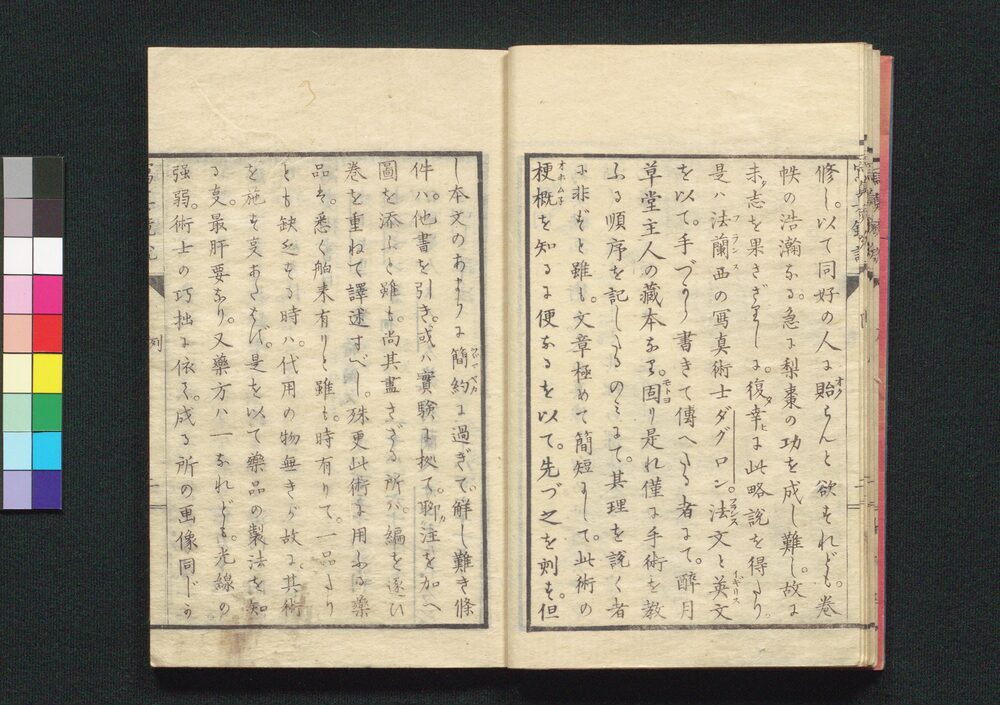 修し。以て同好の人に貽らんと欲それども。巻
帙の浩瀚なる。急に梨棗の功を成し難し。故に
未タ志を果さゞりしに。復幸ヒに此略説を得たり。
是ハ法蘭西の寫真術士ダグロン。法文と英文
を以て。手づから書きて傳へたる者にて。醉月
草堂主人の藏本なる。固り是れ僅に手術を教
ふる順序を記したるのミにて。其理を説く者
に非ずと雖も。文章極めて簡短にして。此術の
梗概を知るに便なるを以て。先づ之を刻す。但
し本文のあまりに簡約に過ぎて。解し難き條
件ハ。他書を引き。或ハ實験に拠て。聊注を加へ
圖を添ふと雖も。尚其盡さゞる所ハ。編を逐ひ
巻を重ねて譯述すべし。殊更此術に用ふる藥
品ハ。悉く舶来有りと雖も。時有りて。一品たり
とも缺乏する時ハ。代用の物無きが故に。其術
を施す叓あたはず。是を以て藥品の製法を知
る叓。最肝要なり。又藥方ハ一なれども。光線の
强弱。術士の巧拙に依て。成る所の画像同じか
例